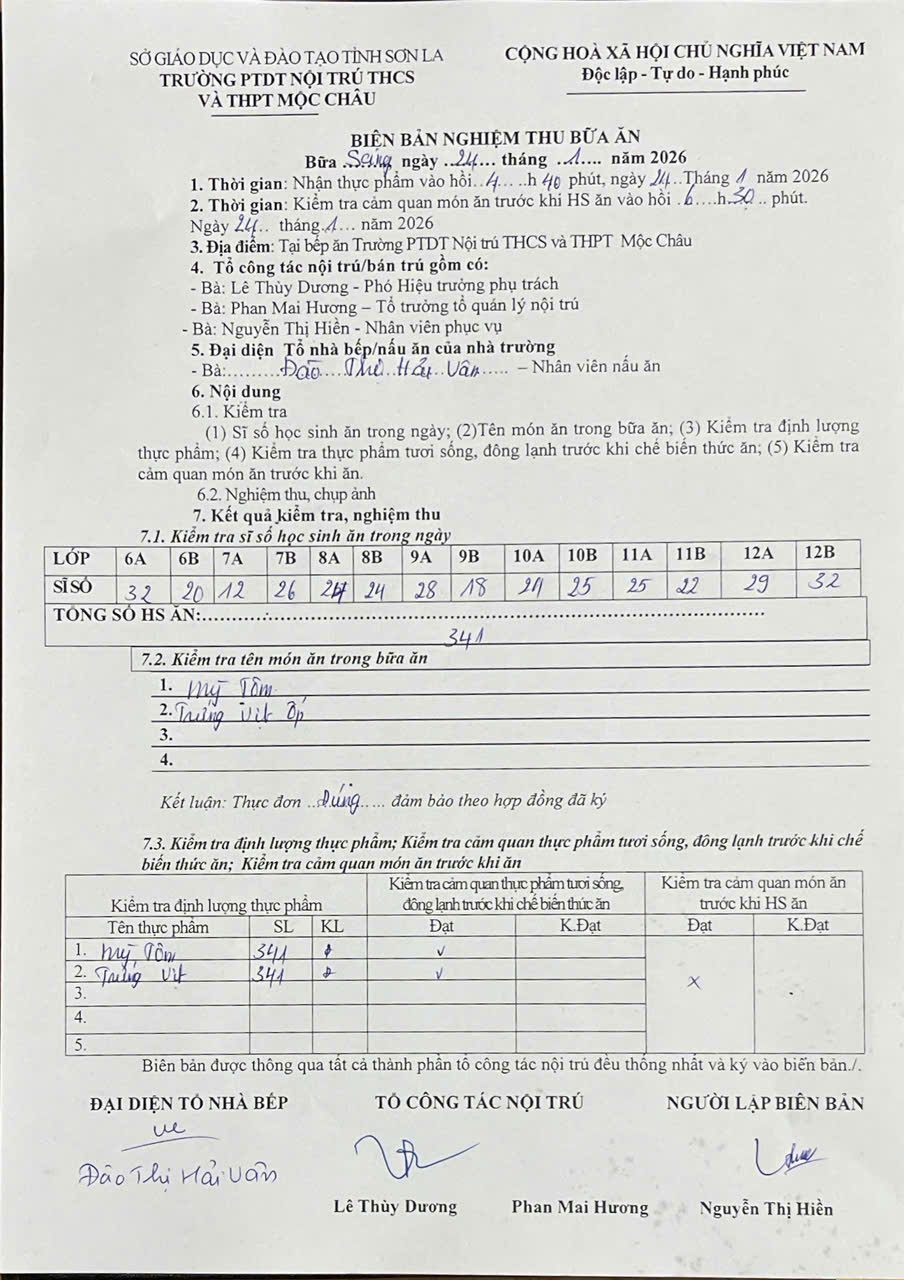 SỞ GIÁO DỤC VÀ ĐÀO TẠO TỈNH SƠN LA
TRƯỜNG PTDT NỘI TRÚ THCS
VÀ THPT MỘC CHÂU
CỘNG HOÀ XÃ HỘI CHỦ NGHĨA VIỆT NAM
Độc lập - Tự do - Hạnh phúc
BIÊN BẢN NGHIỆM THU BỮA ĂN
Bữa ..Sáng ngày ..24... tháng ..1.... năm 2026
1. Thời gian: Nhận thực phẩm vào hồi..4.....h 40 phút, ngày 24..Tháng 1 năm 2026
2. Thời gian: Kiểm tra cảm quan món ăn trước khi HS ăn vào hồi .6....h.30.. phút.
Ngày 24.. tháng.1... năm 2026
3. Địa điểm: Tại bếp ăn Trường PTDT Nội trú THCS và THPT Mộc Châu
4. Tổ công tác nội trú/bán trú gồm có:
- Bà: Lê Thùy Dương - Phó Hiệu trưởng phụ trách
- Bà: Phan Mai Hương – Tổ trưởng tổ quản lý nội trú
- Bà: Nguyễn Thị Hiền - Nhân viên phục vụ
5. Đại diện Tổ nhà bếp/nấu ăn của nhà trường
- Bà:.........Đào....Thị..Hải..Vân..... – Nhân viên nấu ăn
6. Nội dung
6.1. Kiểm tra
(1) Sĩ số học sinh ăn trong ngày; (2)Tên món ăn trong bữa ăn; (3) Kiểm tra định lượng
thực phẩm; (4) Kiểm tra thực phẩm tươi sống, đông lạnh trước khi chế biến thức ăn; (5) Kiểm tra
cảm quan món ăn trước khi ăn.
6.2. Nghiệm thu, chụp ảnh
7. Kết quả kiểm tra, nghiệm thu
7.1. Kiểm tra sĩ số học sinh ăn trong ngày
LỚP 6A 6B 7A 7B 8A 8B 9A 9B 10A 10B 11A 11B 12A 12B
SĨ SỐ 32 20 12 26 24 24 28 18 24 25 25 22 29 32
TỔNG SỐ HS ĂN:...........................................................
341
7.2. Kiểm tra tên món ăn trong bữa ăn
1. Mỳ Tôm
2. Trứng Vịt Ốp
3.
4.
Kết luận: Thực đơn ..Đúng..... đảm bảo theo hợp đồng đã ký
7.3. Kiểm tra định lượng thực phẩm; Kiểm tra cảm quan thực phẩm tươi sống, đông lạnh trước khi chế
biến thức ăn; Kiểm tra cảm quan món ăn trước khi ăn
Kiểm tra định lượng thực phẩm
Kiểm tra cảm quan thực phẩm tươi sống,
đông lạnh trước khi chế biến thức ăn
Kiểm tra cảm quan món ăn
trước khi HS ăn
Tên thực phẩm SL KL Đạt K.Đạt Đạt K.Đạt
1. Mỳ Tôm 341 v
2. Trứng Vịt 341 v
x
3.
4.
5.
Biên bản được thông qua tất cả thành phần tổ công tác nội trú đều thống nhất và ký vào biên bản./.
ĐẠI DIỆN TỔ NHÀ BẾP TỔ CÔNG TÁC NỘI TRÚ NGƯỜI LẬP BIÊN BẢN
Đào Thị Hải Vân
Lê Thùy Dương Phan Mai Hương Nguyễn Thị Hiền